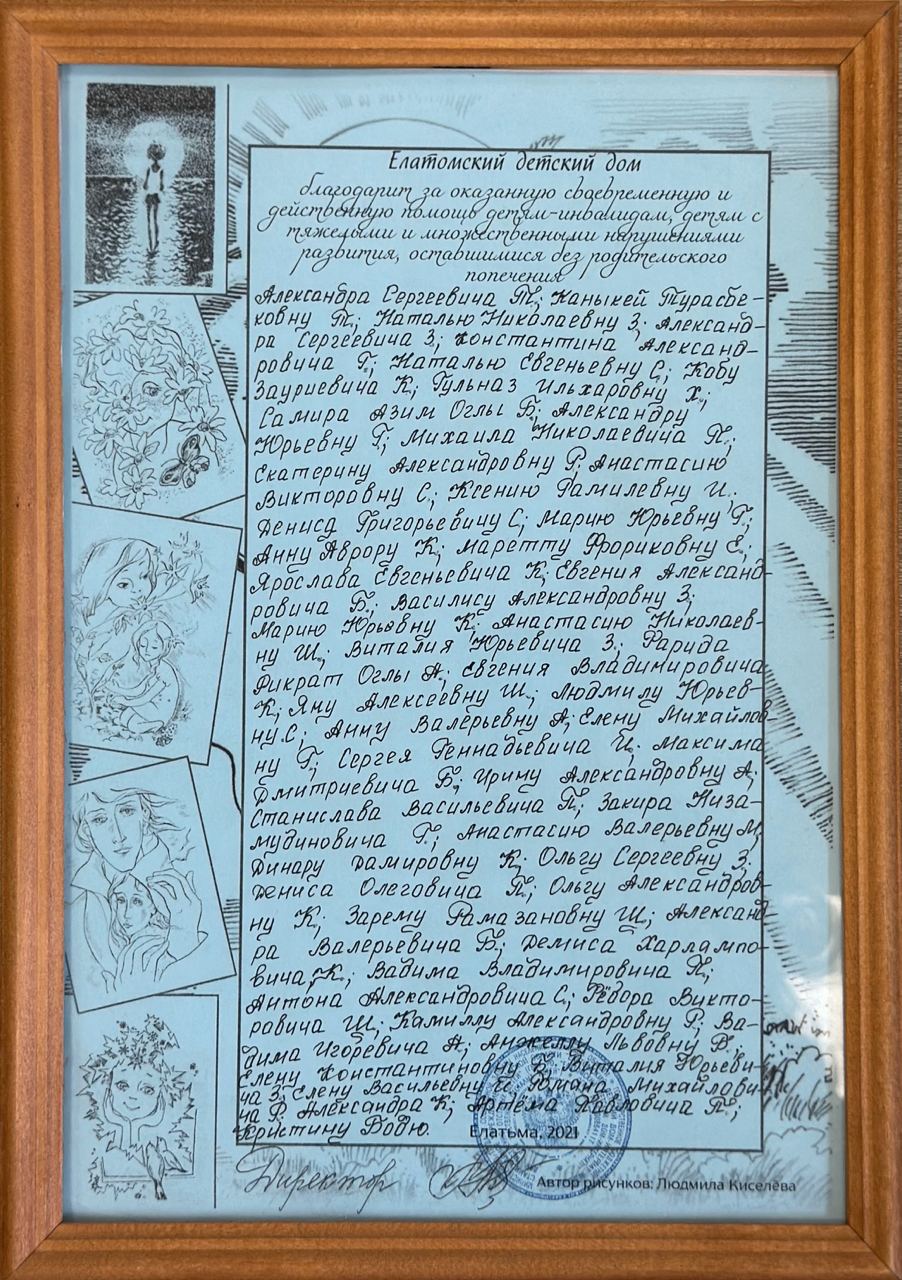 Елатомский детский дом
благодарит за оказанную своевременную и
действенную помощь детям-инвалидам, детям с
тяжелыми и множественными нарушениями
развития, оставшимися без родительского
попечения
Александра Сергеевича Т.; Каныкей Турасбе-
ковну Т.; Наталью Николаевну З.; Александ-
ра Сергеевича З.; Константина Александ-
ровича Г.; Наталью Евгеньевну С.; Кобу
Зауриевича К.; Гульназ Ильхаровну Х.;
Самира Азим Оглы Б.; Александру
Юрьевну Г.; Михаила Николаевича П.;
Екатерину Александровну Р. Анастасию
Викторовну С.; Ксению Рамилевну И.;
Дениса Григорьевича С.; Марию Юрьевну Г.;
Анну Аврору К.; Маретту Фориковну Е.;
Ярослава Евгеньевича К.; Евгения Александ-
ровича Б.; Василису Александровну З.;
Марию Юрьевну К. Анастасию Николаев-
ну Ш.; Виталия Юрьевича З.; Фарида
Фикрат Оглы А.; Евгения Владимировича
К.; Яну Алексеевну Ш.; Людмилу Юрьев-
ну С.; Анну Валерьевну А.; Елену Михайлов-
ну Г.; Сергея Геннадьевича Ц. Максима
Дмитриевича Б.; Ирину Александровну А.;
Станислава Васильевича П.; Закира Низа-
мудиновича Г.; Анастасию Валерьевну М.
Динару Дамировну К.; Ольгу Сергеевну З.
Дениса Олеговича П.; Ольгу Александров-
ну К.; Зарему Рамазановну Ш.; Александ-
ра Валерьевича Б.; Дениса Харлампо-
вича К.; Вадима Владимировича П.;
Антона Александровича С.; Фёдора Викто-
ровича Ш.; Камиллу Александровну Р.; Ва-
дима Игоревича А.; Анжеллу Львовну В.;
Елену Константиновну Виталия Юрьеви-
ча З.; Елену Васильевну Романа Михайлови-
ча Р. Александра К.; Артёма Павловича П.;
Кристину Бовю.
Елатьма, 2021
Директор
Автор рисунков: Людмила Киселёва